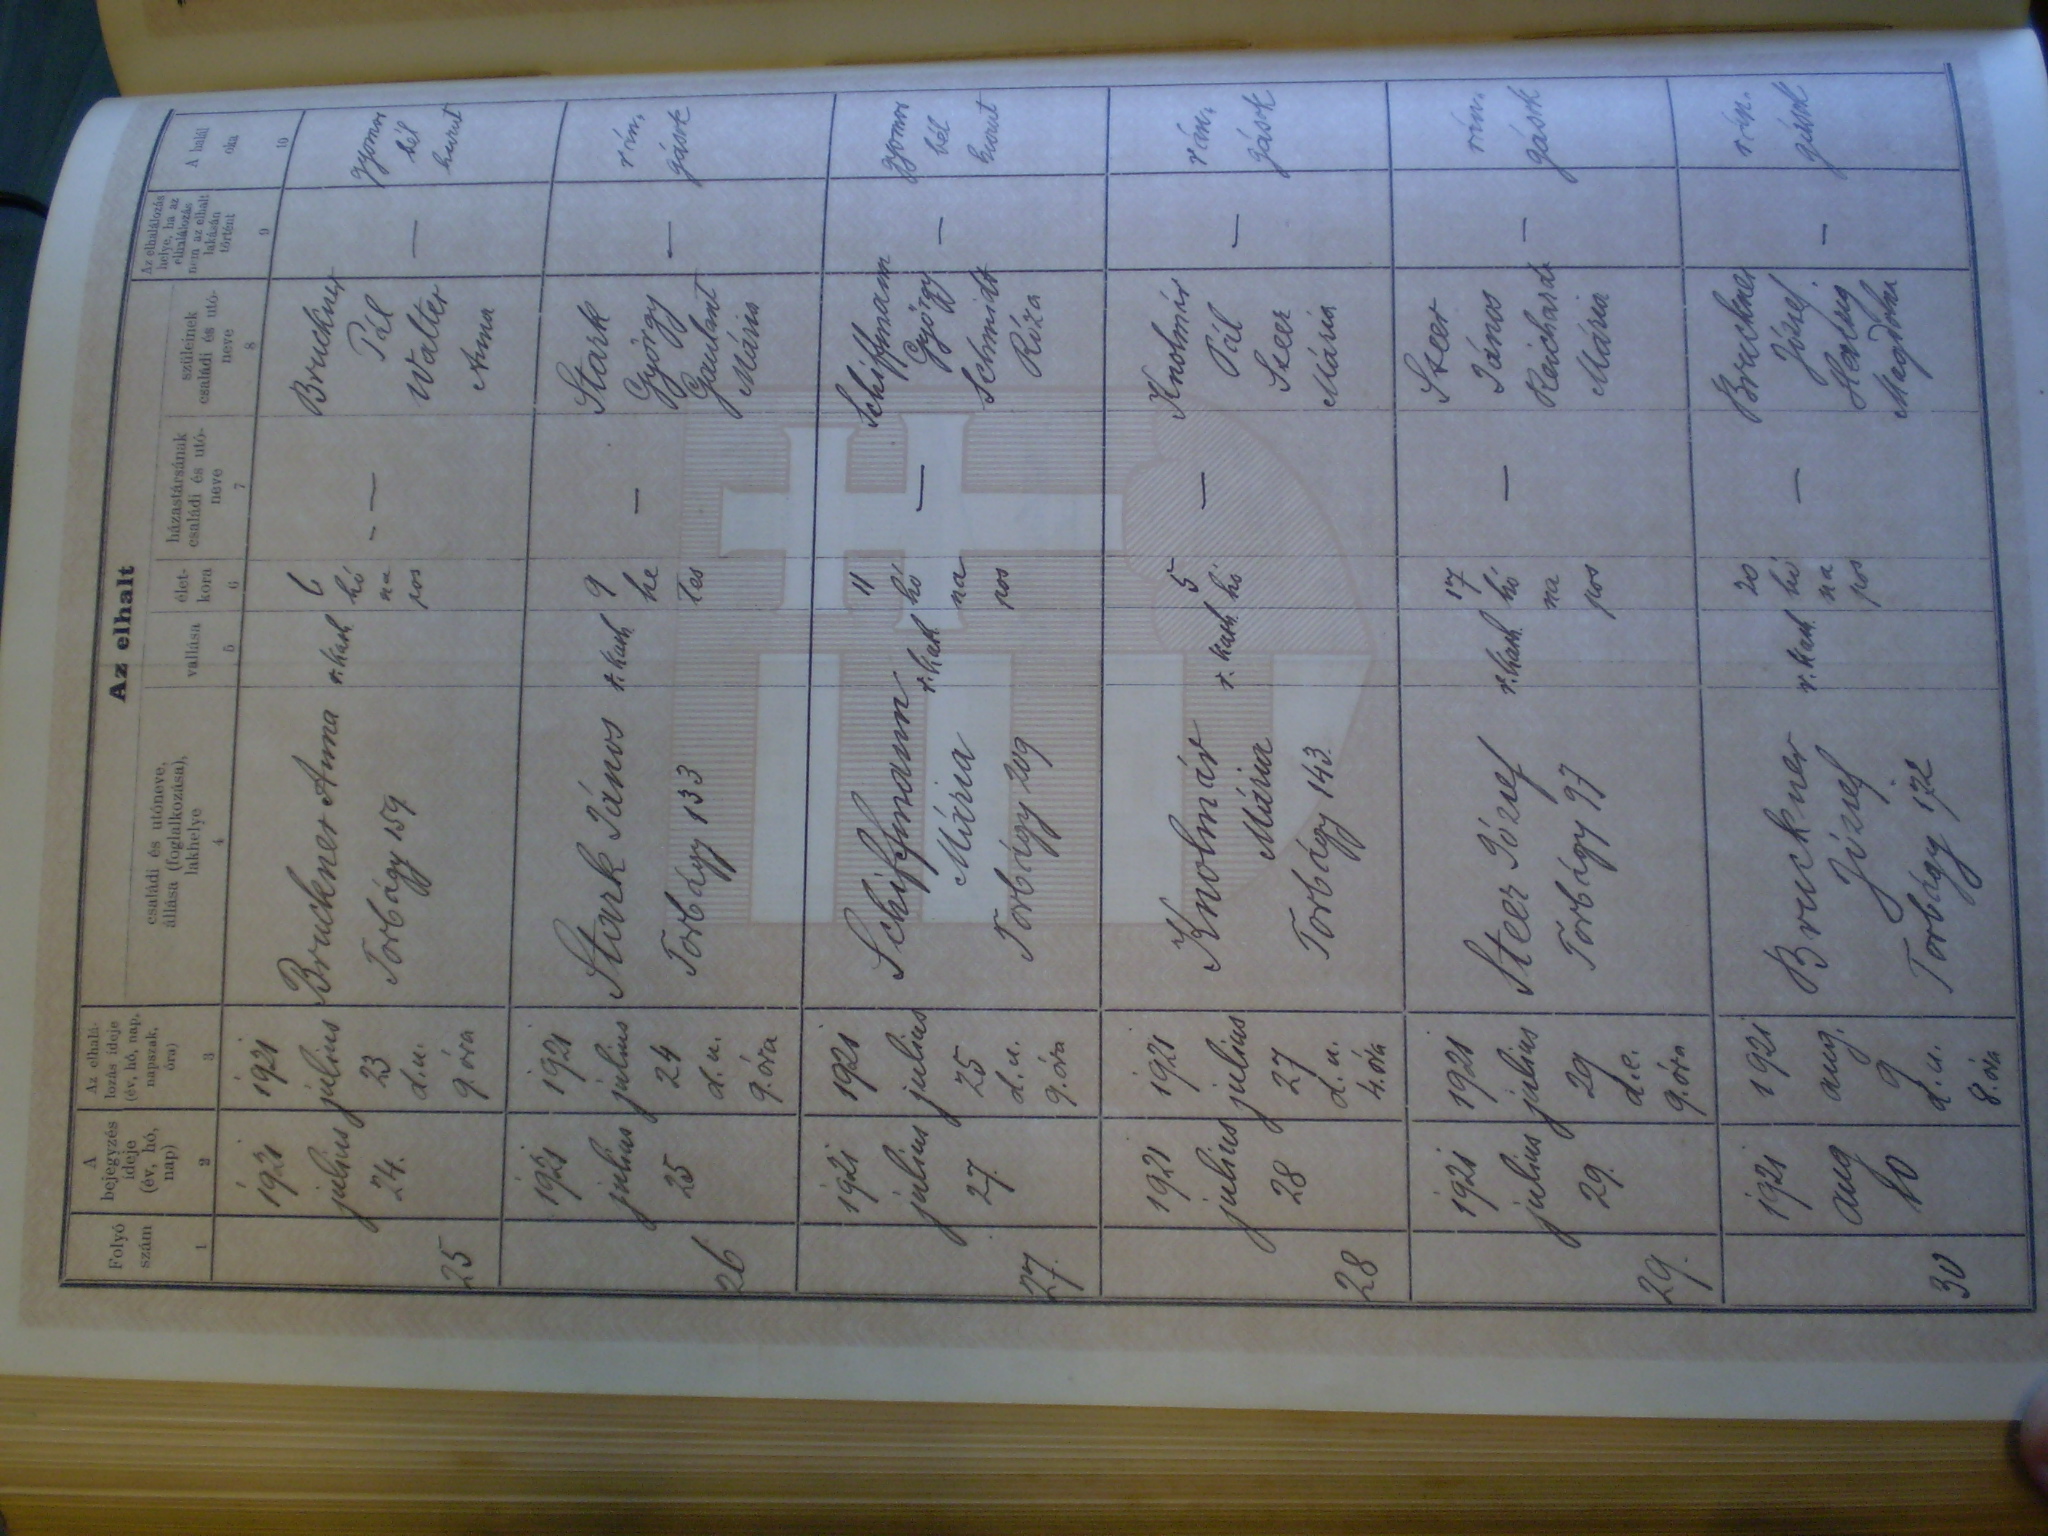 Az elhalt
Folyó
szám
A
bejegyzés
ideje
(év, hó,
nap)
Az elhalá-
lozás ideje
(év, hó, nap,
napszak,
óra)
családi és utóneve,
állása (foglalkozása),
lakhelye
vallása
élet-
kora
házastársának
családi és utó-
neve
szüleinek
családi és utó-
neve
Az elhalálozás
helye, ha az
elhalálozás
nem az elhalt
lakásán
történt
A halál
oka
1
2
3
4
5
6
7
8
9
10
25
1921
julius
24.
1921
julius
23
d.u.
9.óra
Bruckner Anna
Torbágy 159
r.kath.
6
hó
na
pos
- —
Bruckner
Pál
Walter
Anna
—
gyomor
bél
hurut
26
1921
julius
25
1921
julius
24
d.u.
9.óra
Stark János
Torbágy 133
r.kath.
9
he
tes
—
Stark
György
Mária
—
rán,
gások
27.
1921
julius
27.
1921
julius
25
d.u.
9.óra
Schiffmann
Mária
Torbágy 209
r.kath.
11
hó
na
pos
—
Schiffmann
György
Schmidt
Róza
—
gyomor
bél
hurut
28
1921
julius
28
1921
julius
27
d.u.
4.óra
Knolmár
Mária
Torbágy 143.
r.kath.
5
hó
—
Knolmár
Pál
Steer
Mária
—
rán,
gások
29.
1921
julius
29.
1921
julius
29
d.e.
9.óra
Steer József
Torbágy 97
r.kath.
17
hó
na
pos
—
Steer
János
Reichardt
Mária
—
rán,
gások
30
1921
aug
10
1921
aug.
9
d.u.
8.óra
Bruckner
József
Torbágy 172
r.kath.
20
hó
na
pos
—
Bruckner
József
Magdolna
—
rán,
gások